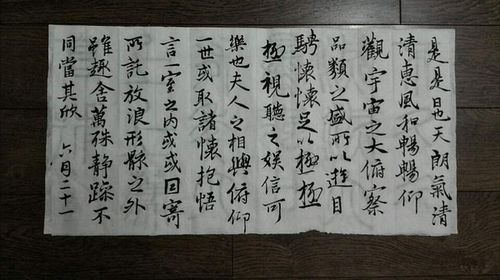 是是日也天朗氣清
清惠風和暢暢仰
觀宇宙之大俯察
品類之盛所以遊目
騁懷懷足以極極
極視聽之娱信可
樂也夫人之相與俯仰
一世或取諸懷抱悟
言一室之内或或因寄
所託放浪形骸之外
雖趣舍萬殊静躁不
同當其欣 六月二十一